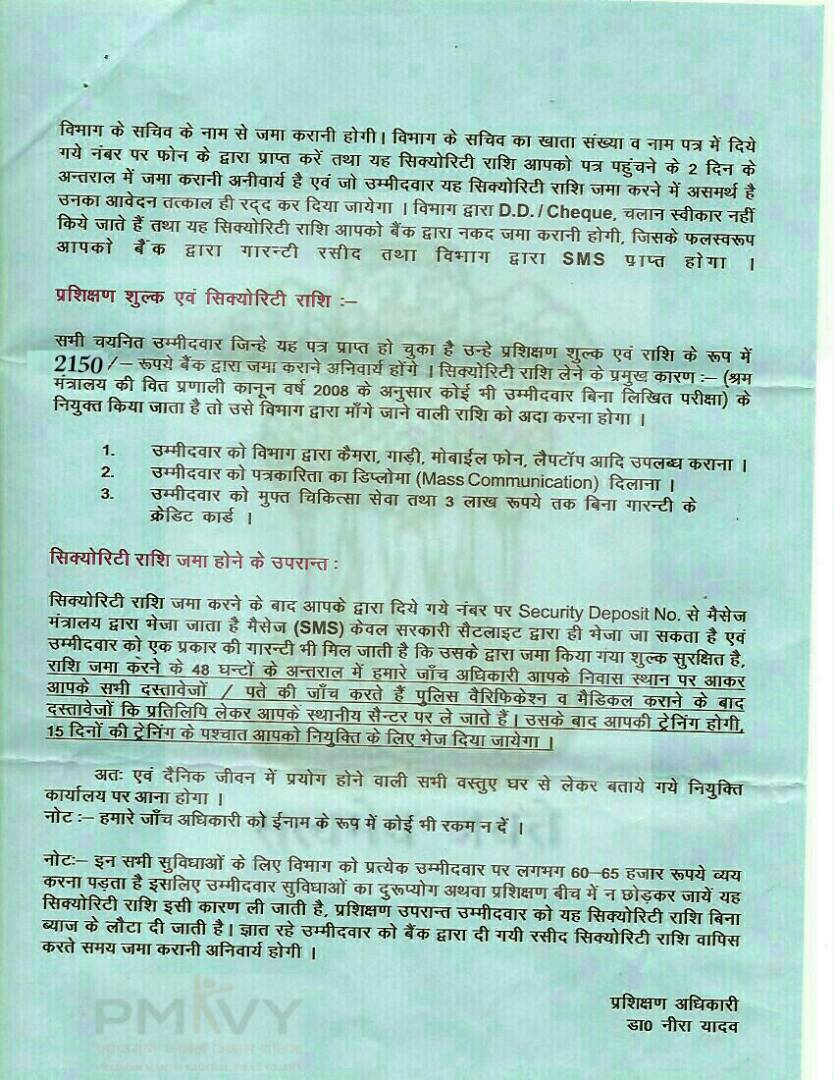 विभाग के सचिव के नाम से जमा करानी होगी। विभाग के सचिव का खाता संख्या व नाम पत्र में दिये
गये नंबर पर फोन के द्वारा प्राप्त करें तथा यह सिक्योरिटी राशि आपको पत्र पहुंचने के 2 दिन के
अन्तराल में जमा करानी अनीवार्य है एवं जो उम्मीदवार यह सिक्योरिटी राशि जमा करने में असमर्थ है
उनका आवेदन तत्काल ही रद्द कर दिया जायेगा । विभाग द्वारा D.D. / Cheque, चलान स्वीकार नहीं
किये जाते हैं तथा यह सिक्योरिटी राशि आपको बैंक द्वारा नकद जमा करानी होगी, जिसके फलस्वरूप
आपको बैंक द्वारा गारन्टी रसीद तथा विभाग द्वारा SMS प्राप्त होगा ।
प्रशिक्षण शुल्क एवं सिक्योरिटी राशि :–
सभी चयनित उम्मीदवार जिन्हे यह पत्र प्राप्त हो चुका है उन्हे प्रशिक्षण शुल्क एवं राशि के रूप में
2150/– रूपये बैंक द्वारा जमा कराने अनिवार्य होंगे । सिक्योरिटी राशि लेने के प्रमुख कारण :– (श्रम
मंत्रालय की वित प्रणाली कानून वर्ष 2008 के अनुसार कोई भी उम्मीदवार बिना लिखित परीक्षा) के
नियुक्त किया जाता है तो उसे विभाग द्वारा माँगे जाने वाली राशि को अदा करना होगा ।
1. उम्मीदवार को विभाग द्वारा कैमरा, गाड़ी, मोबाईल फोन, लैपटॉप आदि उपलब्ध कराना ।
2. उम्मीदवार को पत्रकारिता का डिप्लोमा (Mass Communication) दिलाना ।
3. उम्मीदवार को मुफ्त चिकित्सा सेवा तथा 3 लाख रूपये तक बिना गारन्टी के
क्रेडिट कार्ड ।
सिक्योरिटी राशि जमा होने के उपरान्त :
सिक्योरिटी राशि जमा करने के बाद आपके द्वारा दिये गये नंबर पर Security Deposit No. से मैसेज
मंत्रालय द्वारा भेजा जाता है मैसेज (SMS) केवल सरकारी सैटलाइट द्वारा ही भेजा जा सकता है एवं
उम्मीदवार को एक प्रकार की गारन्टी भी मिल जाती है कि उसके द्वारा जमा किया गया शुल्क सुरक्षित है,
राशि जमा करने के 48 घन्टों के अन्तराल में हमारे जाँच अधिकारी आपके निवास स्थान पर आकर
आपके सभी दस्तावेजों / पते की जाँच करते हैं पुलिस वैरिफिकेश्न व मैडिकल कराने के बाद
दस्तावेजों कि प्रतिलिपि लेकर आपके स्थानीय सैन्टर पर ले जाते हैं। उसके बाद आपकी ट्रेनिंग होगी,
15 दिनों की ट्रेनिंग के पश्चात आपको नियुक्ति के लिए भेज दिया जायेगा ।
अतः एवं दैनिक जीवन में प्रयोग होने वाली सभी वस्तुए घर से लेकर बताये गये नियुक्ति
कार्यालय पर आना होगा ।
नोट :– हमारे जाँच अधिकारी को ईनाम के रूप में कोई भी रकम न दें ।
नोटः– इन सभी सुविधाओं के लिए विभाग को प्रत्येक उम्मीदवार पर लगभग 60–65 हजार रूपये व्यय
करना पड़ता है इसलिए उम्मीदवार सुविधाओं का दुरूप्योग अथवा प्रशिक्षण बीच में न छोड़कर जायें यह
सिक्योरिटी राशि इसी कारण ली जाती है, प्रशिक्षण उपरान्त उम्मीदवार को यह सिक्योरिटी राशि बिना
ब्याज के लौटा दी जाती है। ज्ञात रहे उम्मीदवार को बैंक द्वारा दी गयी रसीद सिक्योरिटी राशि वापिस
करते समय जमा करानी अनिवार्य होगी ।
प्रशिक्षण अधिकारी
डा0 नीरा यादव
PMKVY